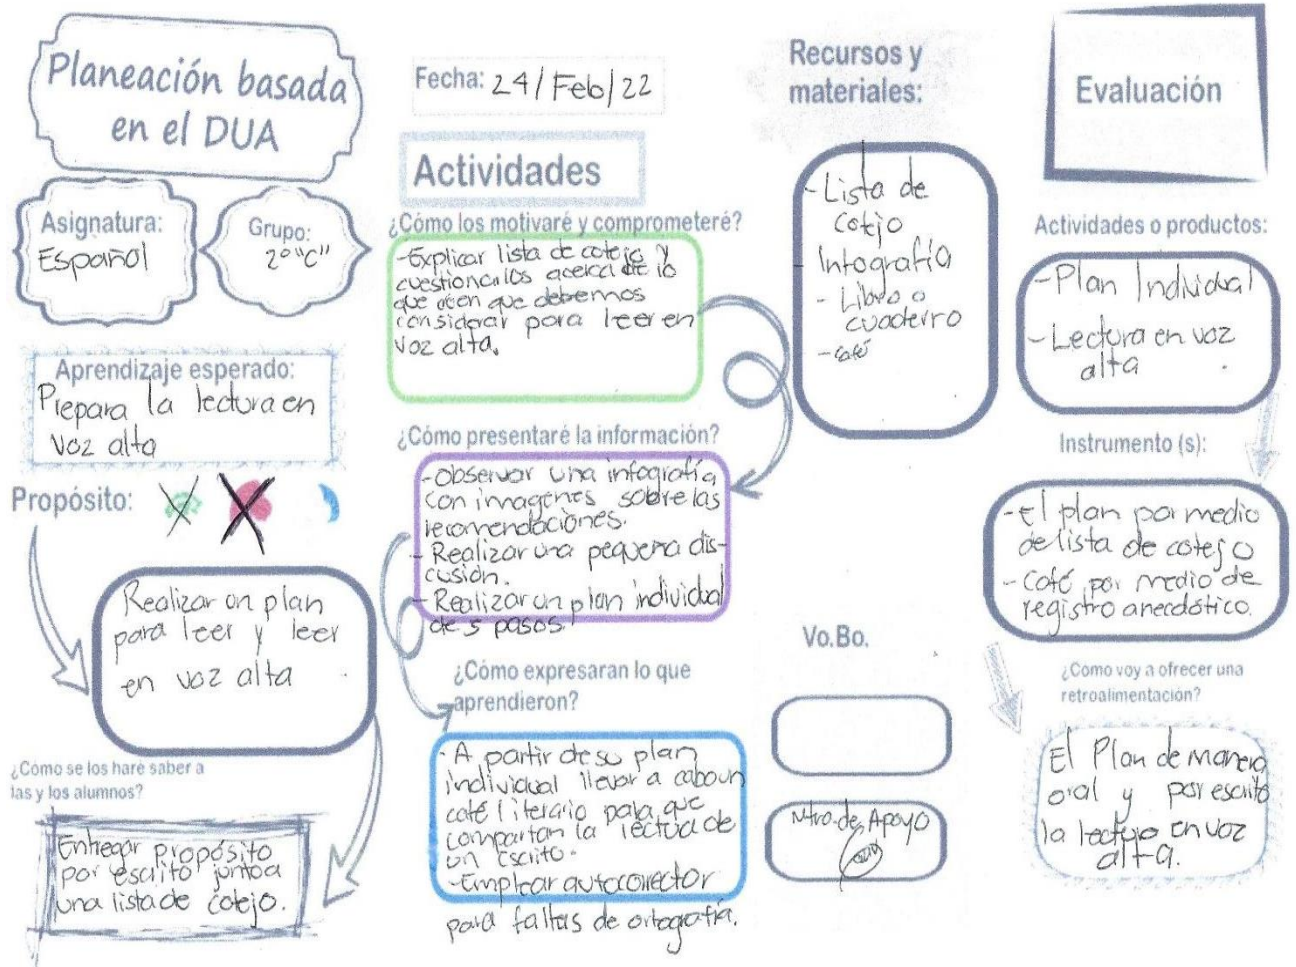 Planeación basada
en el DUA
Asignatura:
Español
Grupo:
2° "C"
Aprendizaje esperado:
Prepara la lectura en
voz alta
Propósito:
Realizar un plan
para leer y leer
en voz alta
¿Cómo se los haré saber a
las y los alumnos?
Entregar propósito
por escrito junto a
una lista de cotejo.
Fecha: 24/Feb/22
Actividades
¿Cómo los motivaré y comprometeré?
-Explicar lista de cotejo y
cuestionarlos acerca de lo
que creen que debemos
considerar para leer en
voz alta.
¿Cómo presentaré la información?
-Observar una infografía
con imagenes sobre las
recomendaciones.
- Realizar una pequeña dis-
cusión.
- Realizar un plan individual
de 5 pasos.
¿Cómo expresaran lo que
aprendieron?
- A partir de su plan
individual llevar a cabo un
café literario para que
compartan la lectura de
un escrito.
-Emplear autocorrector
para faltas de ortografía.
Recursos y
materiales:
- Lista de
cotejo
- Infografía
- Libro o
cuaderno
- café
Vo.Bo.
Mtro. de Apoyo
Evaluación
Actividades o productos:
- Plan Individual
- Lectura en voz
alta
Instrumento (s):
- El plan por medio
de lista de cotejo
- Café por medio de
registro anecdótico.
¿Como voy a ofrecer una
retroalimentación?
El Plan de manera
oral y por escrito
la lectura en voz
alta.